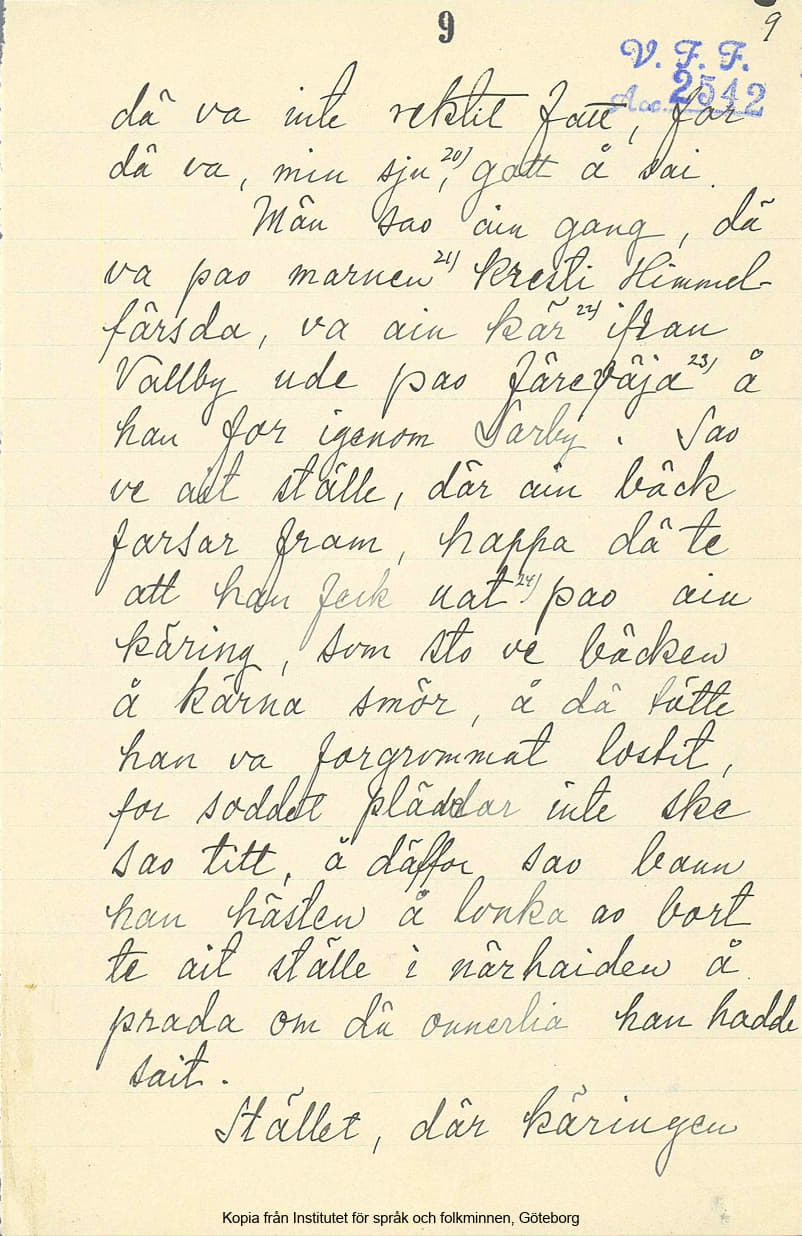 9
9
V. F. F.
Acc. 2542
då va inte rektit fatt, for
då va, min sju,²⁰⁾ gott å sai.
Män sao ain gang, dä
va pao marnen²¹⁾ kresti Himmel-
färsda, va ain kär²²⁾ ifran
Vallby ude pao färeväja²³⁾ å
han for igenom Sarby. Sao
ve ait ställe, där ain bäck
farsar fram, happa dä te
att han feck nat²⁴⁾ pao ain
käring, som sto ve bäcken
å kärna smör, å dä tötte
han va forgrommat lostit,
for soddet pläddar inte ske
sao titt, å däffor sao bann
han hästen å lonka ao bort
te ait ställe i närhaiden å
prada om dä onnerlia han hadde
sait.
Stället, där käringen
Kopia från Institutet för språk och folkminnen, Göteborg